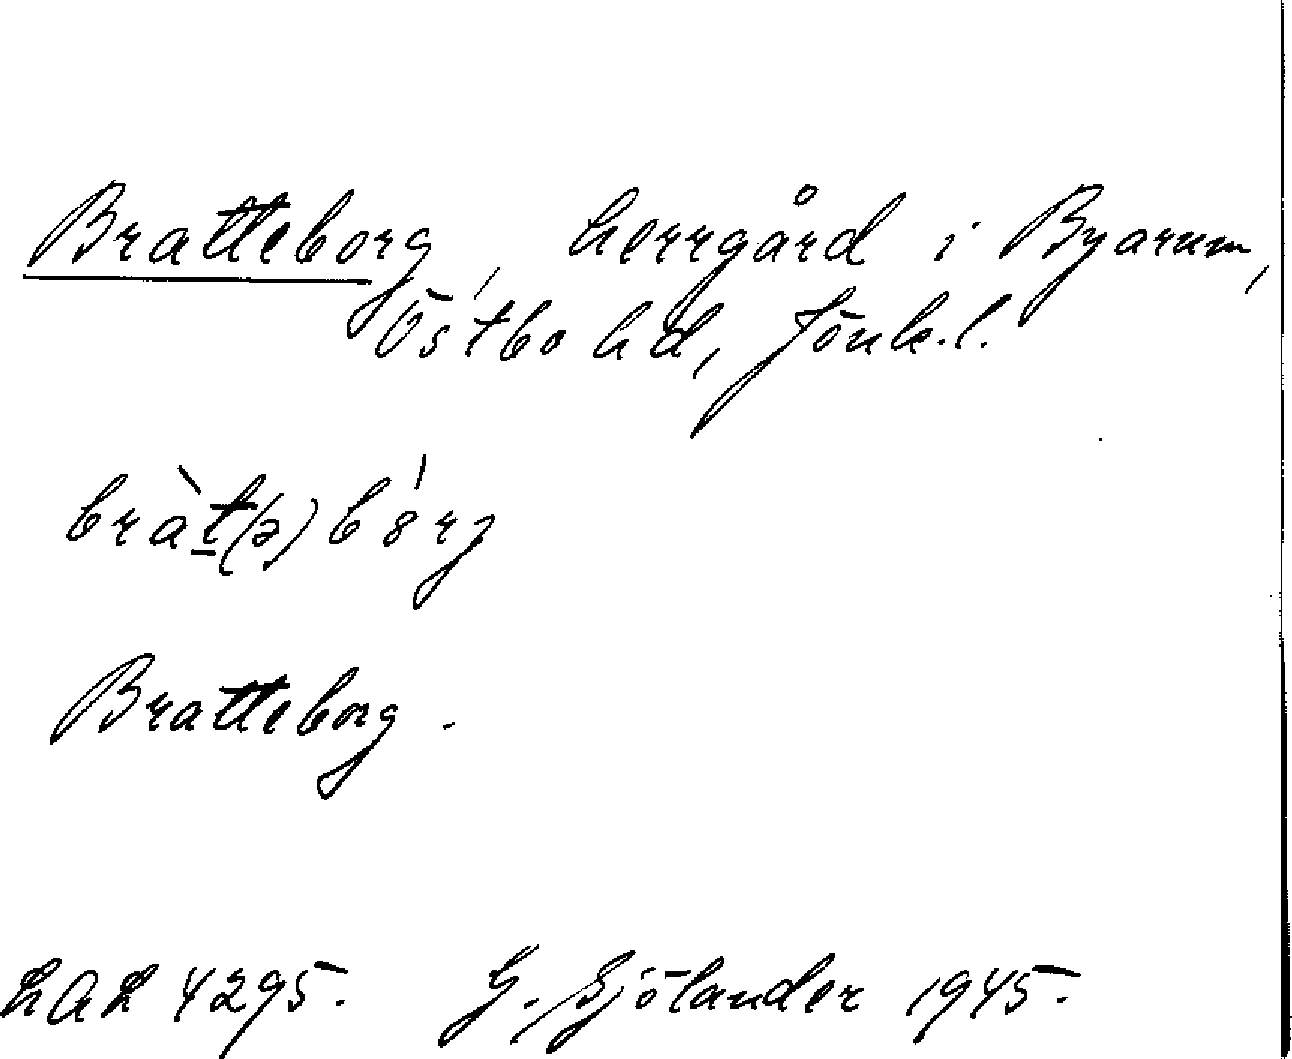 Bratteborg, herrgård i Byarum,
Östbo hd, Jönk.l.
bràt̲(ə)bórj
Bratteborg.
LAL 4295. G. Sjölander 1945.